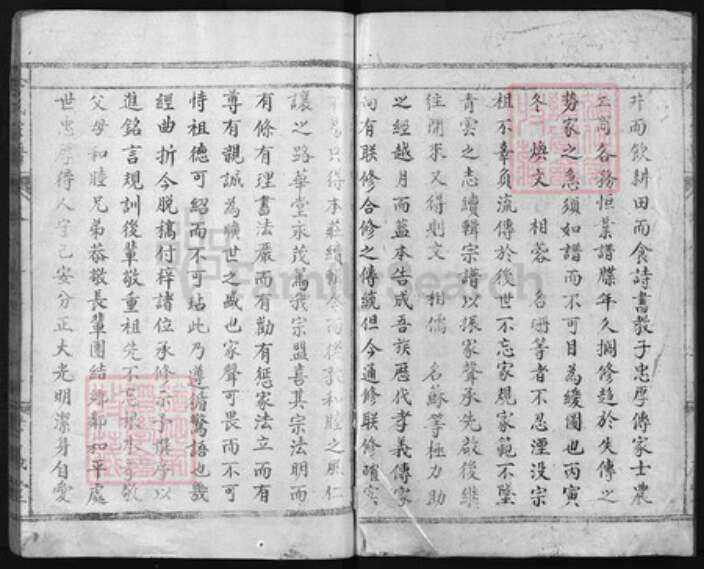 井而飲耕田而食詩書教子忠厚傳家士農
工商各務恒業譜牒年久擱修趋於失傳之
勢家之急須如譜而不可目為緩圖也丙寅
冬 煥文 相蓉 名珊等者不忍湮没宗
祖不辜負流傳於後世不忘家規家範不墜
青雲之志續輯宗譜以振家聲承先啟後継
往開來又得則文 相儒 名蘇等極力助
之經越月而蓋本告成吾族歷代孝義傳家
向有联修合修之傳統但今通修联修頗
只得本莊續 而從 和睦之 仁
讓之路華堂永茂篤我宗盟喜其宗法明而
有條有理書法嚴而有勸有惩家法立而有
尊有親誠為曠世之盛也家聲可畏而不可
恃祖德可紹而不可玷此乃遵循驚語也幾
經曲折今脱稿付梓諸位承修示予撰序以
進銘言規訓後輩敬重祖先不忘 敬
父母和睦兄弟恭敬長輩團結鄉鄰和平處
世忠厚待人守己安分正大光明潔身自愛
FamilySearch